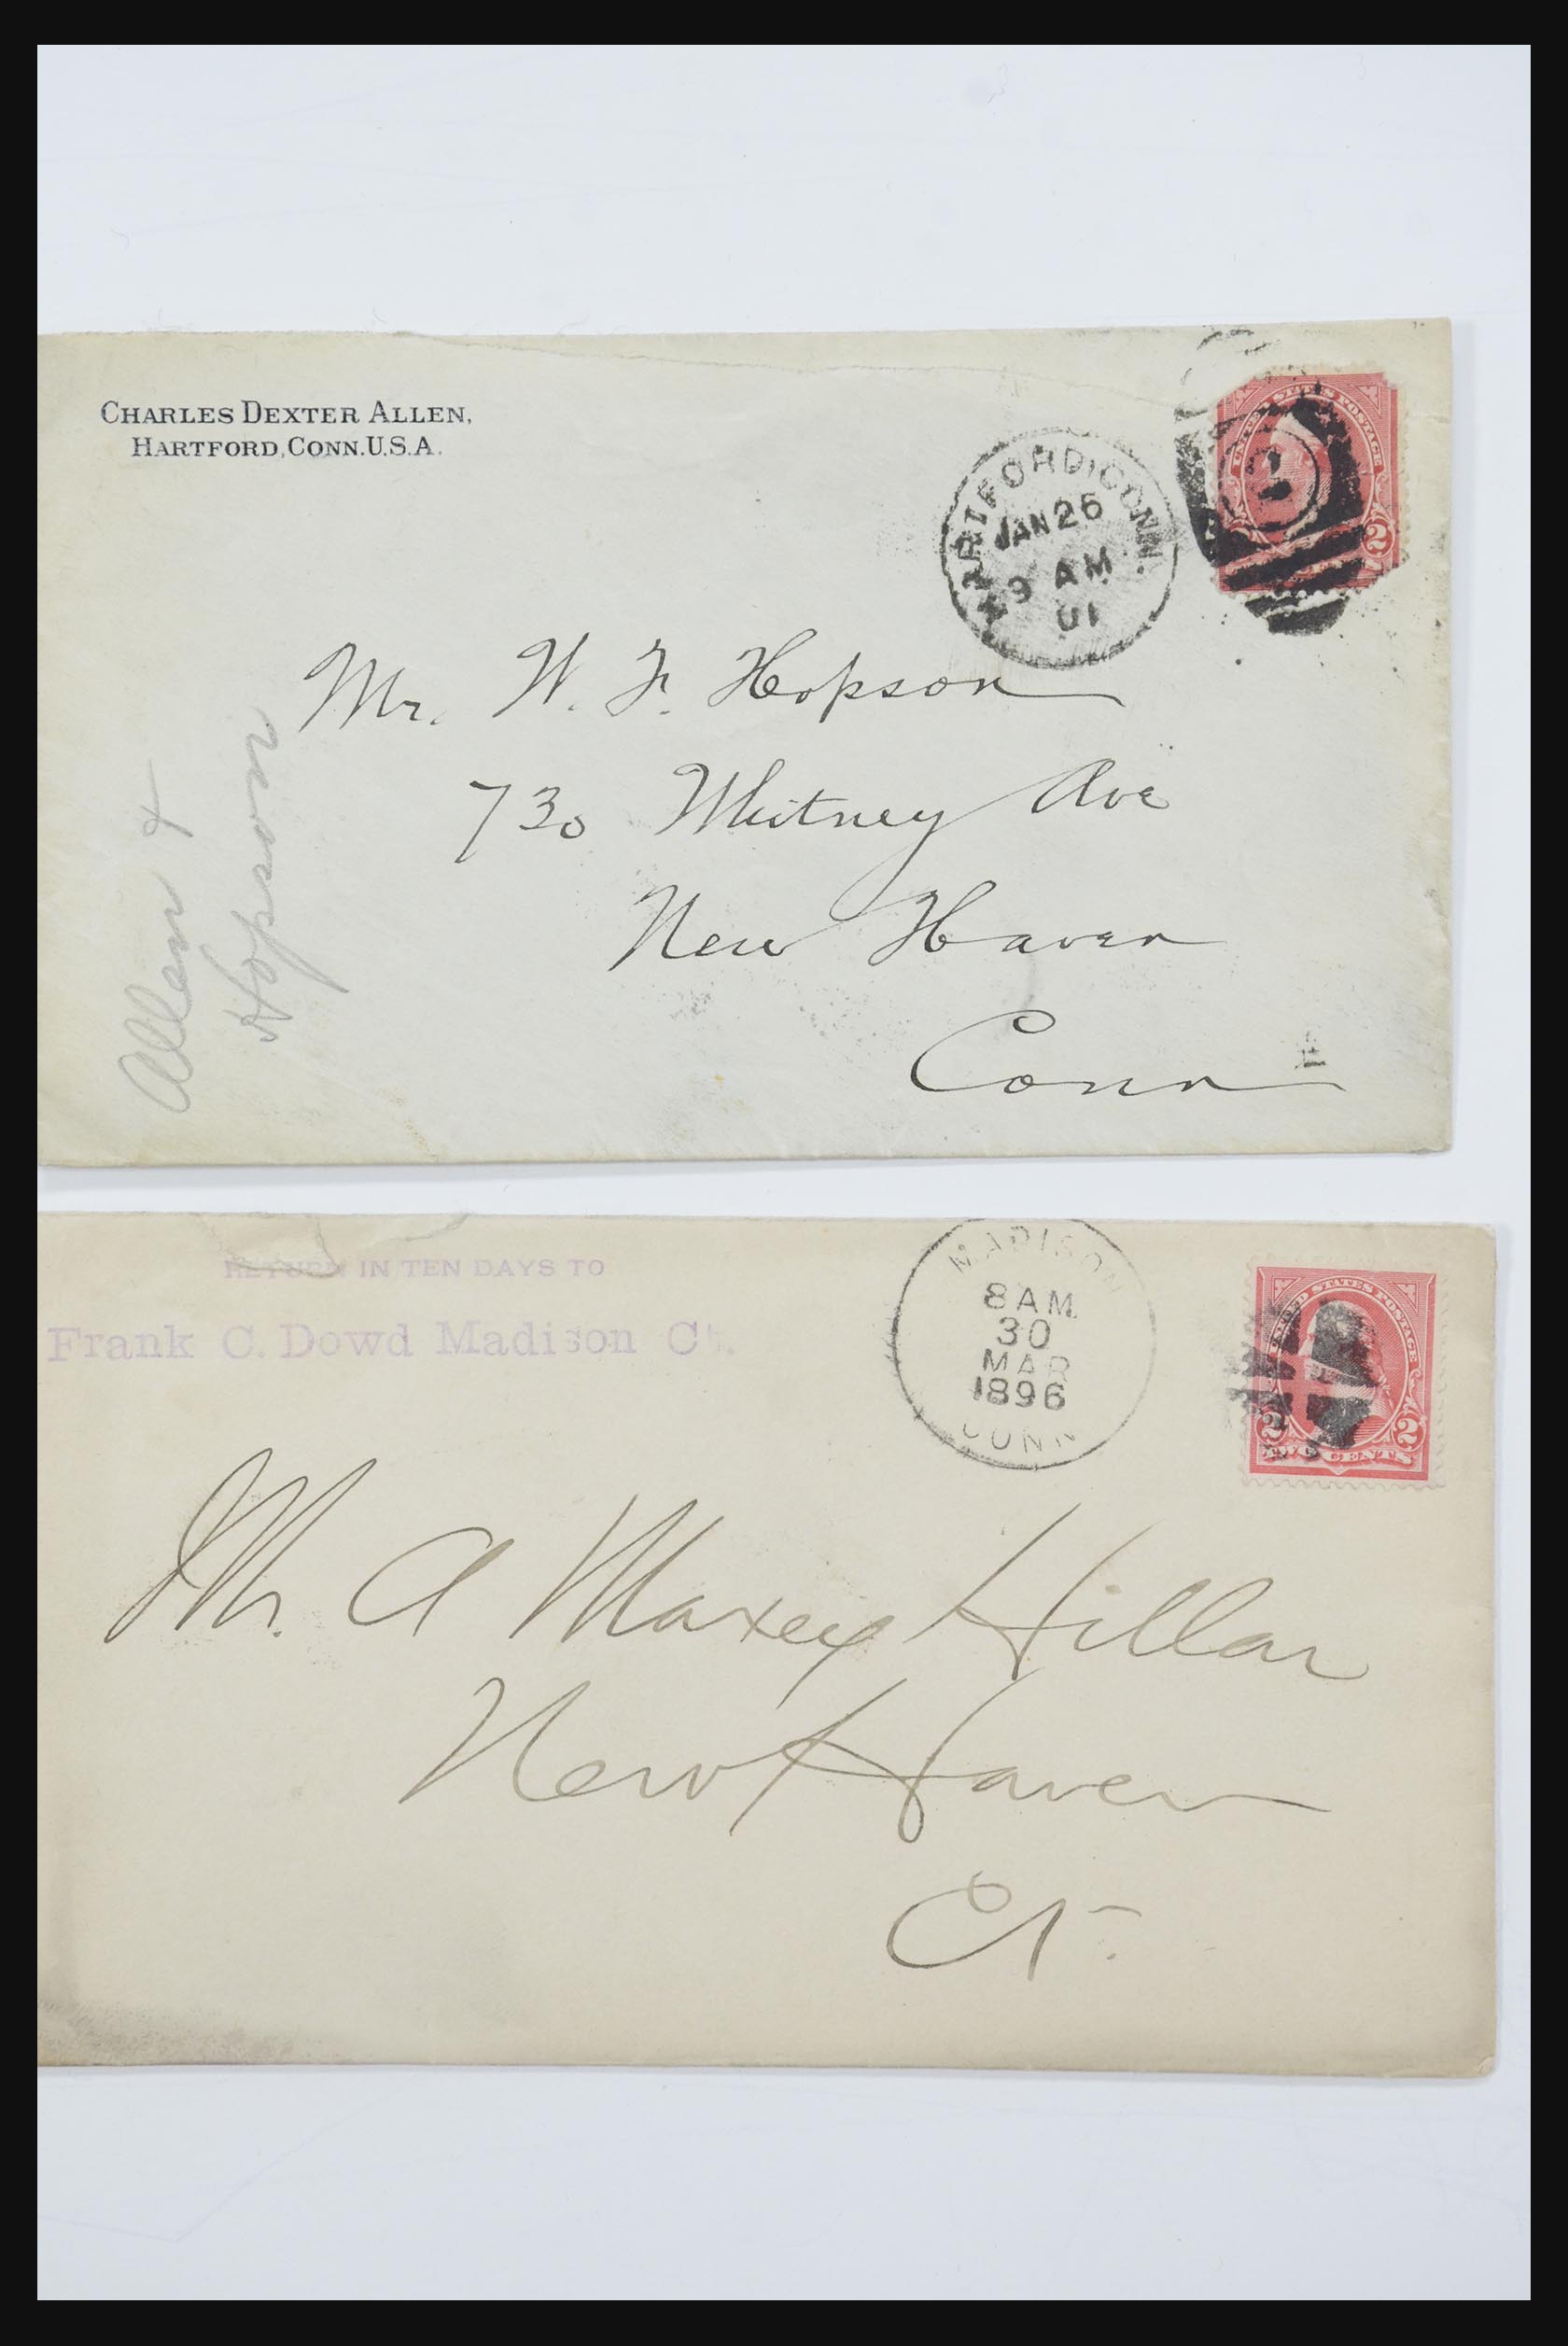 CHARLES DEXTER ALLEN,
HARTFORD, CONN. U.S.A.
HARTFORD, CONN.
JAN 26
9 AM
01
UNITED STATES POSTAGE
2
2
Mr. W. F. Hopson
730 Whitney Ave
New Haven
Conn
Allen &
Hopson
RETURN IN TEN DAYS TO
Frank C. Dowd Madison Ct.
MADISON
8 AM
30
MAR
1896
CONN
UNITED STATES POSTAGE
2 2
TWO CENTS
Mr. A Maxcy Hillar
New Haven
Ct.